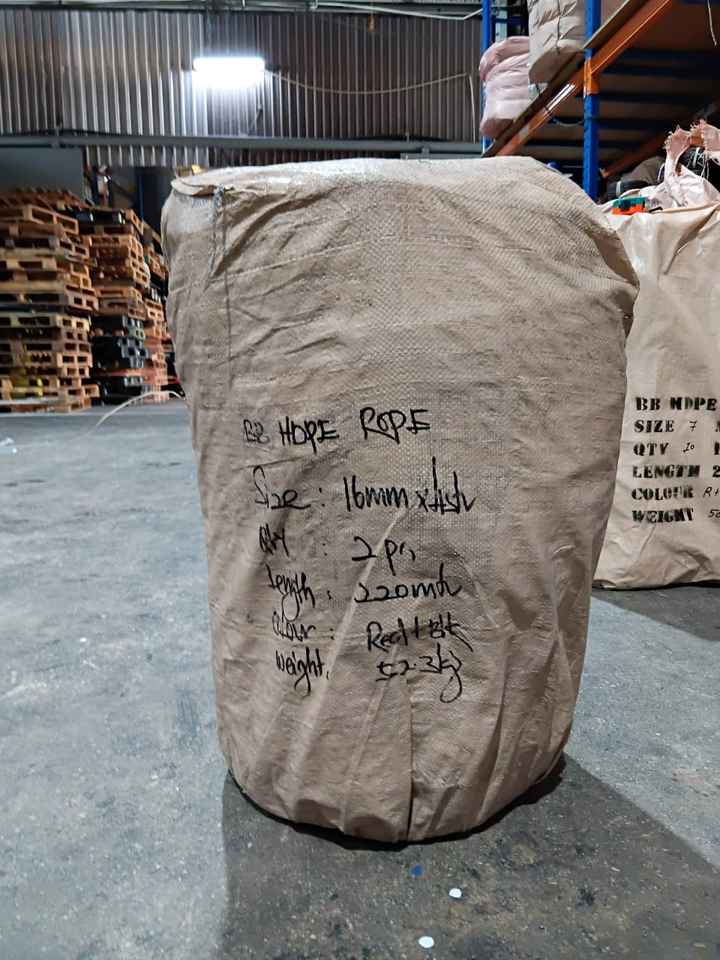 BB HDPE ROPE
Size : 16mm x 4str
Qty : 2 pcs
Length : 220mtr
Colour : Red / Blk
Weight : 52.3kg
BB HDPE
SIZE 7
QTY 10
LENGTH 2
COLOUR
WEIGHT 50